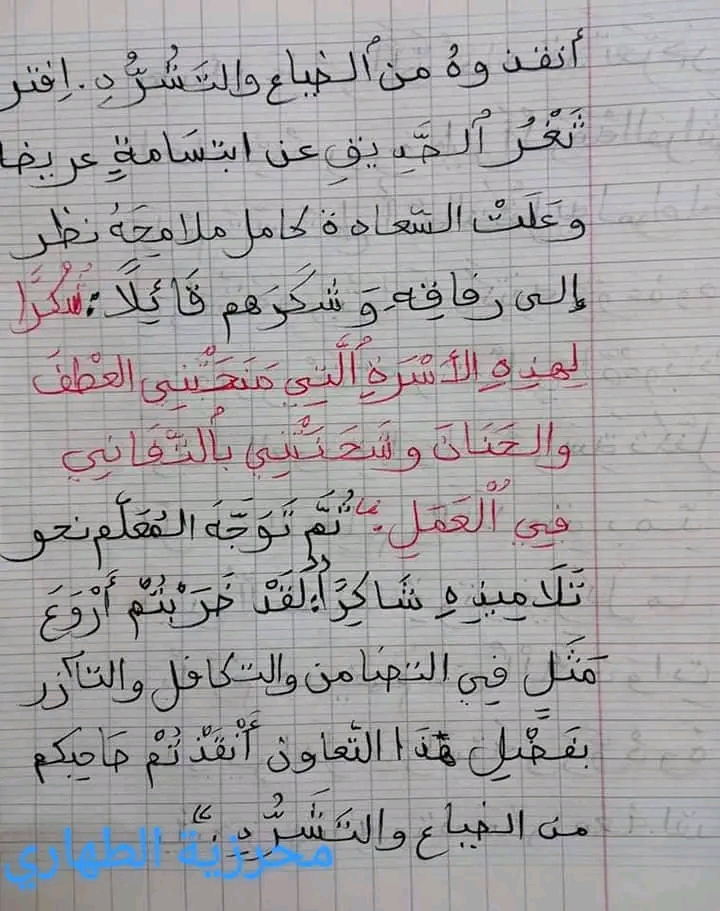 أنقذوهُ من ٱلضياع والتَشُرُّدِ. اِفتر
ثَغْرُ ٱلصَّدِيقِ عن ابتسَامةٍ عريضا
وعَلَتْ السّعادة كامل ملامحَهُ نظر
إلى رفاقِهِ وَشكَرَهم قَائِلًا: "شُكرًا
لِهذِهِ الأُسْرَةِ ٱلَّتِي مَنَحَتْنِي العَطْفَ
والحَنَانَ وشَحَنَتْنِي بٱلتّفَانِي
فِي ٱلْعَمَلِ." ثُمَّ تَوَجَّهَ المُعَلّم نحو
تَلَامِيذِهِ شَاكِرًا: "لَقَدْ ضَرَبْتُمْ أَرْوَعَ
مَثَلٍ فِي التضامن والتكافل والتآزر
بفَضْلِ هَذَا التّعاون أَنْقَذْتُمْ صَاحِبكم
من الضياع والتَشَرُّدِ."
محرزية الطهاري